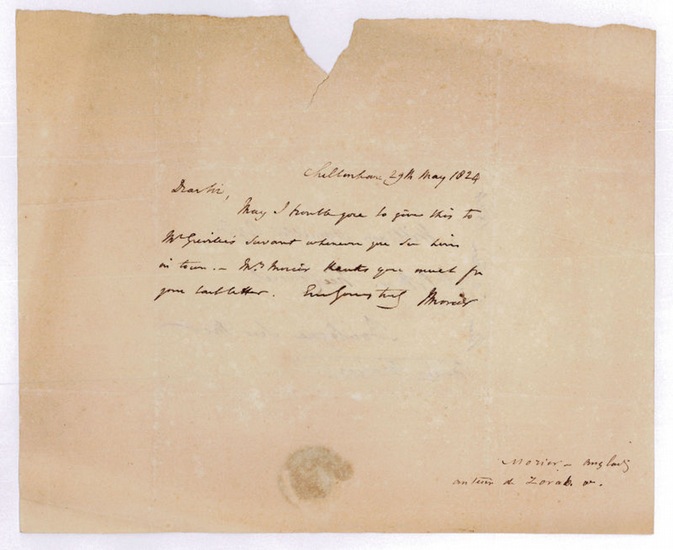 Cheltenham 29th May 1824
Dear Sir,
May I trouble you to give this to
Mr Greville's Servant whenever you see him
in town. – Mrs Morier thanks you much for
your last letter. Ever Yours truly JMorier
Morier. – anglais
auteur de Zorab &.